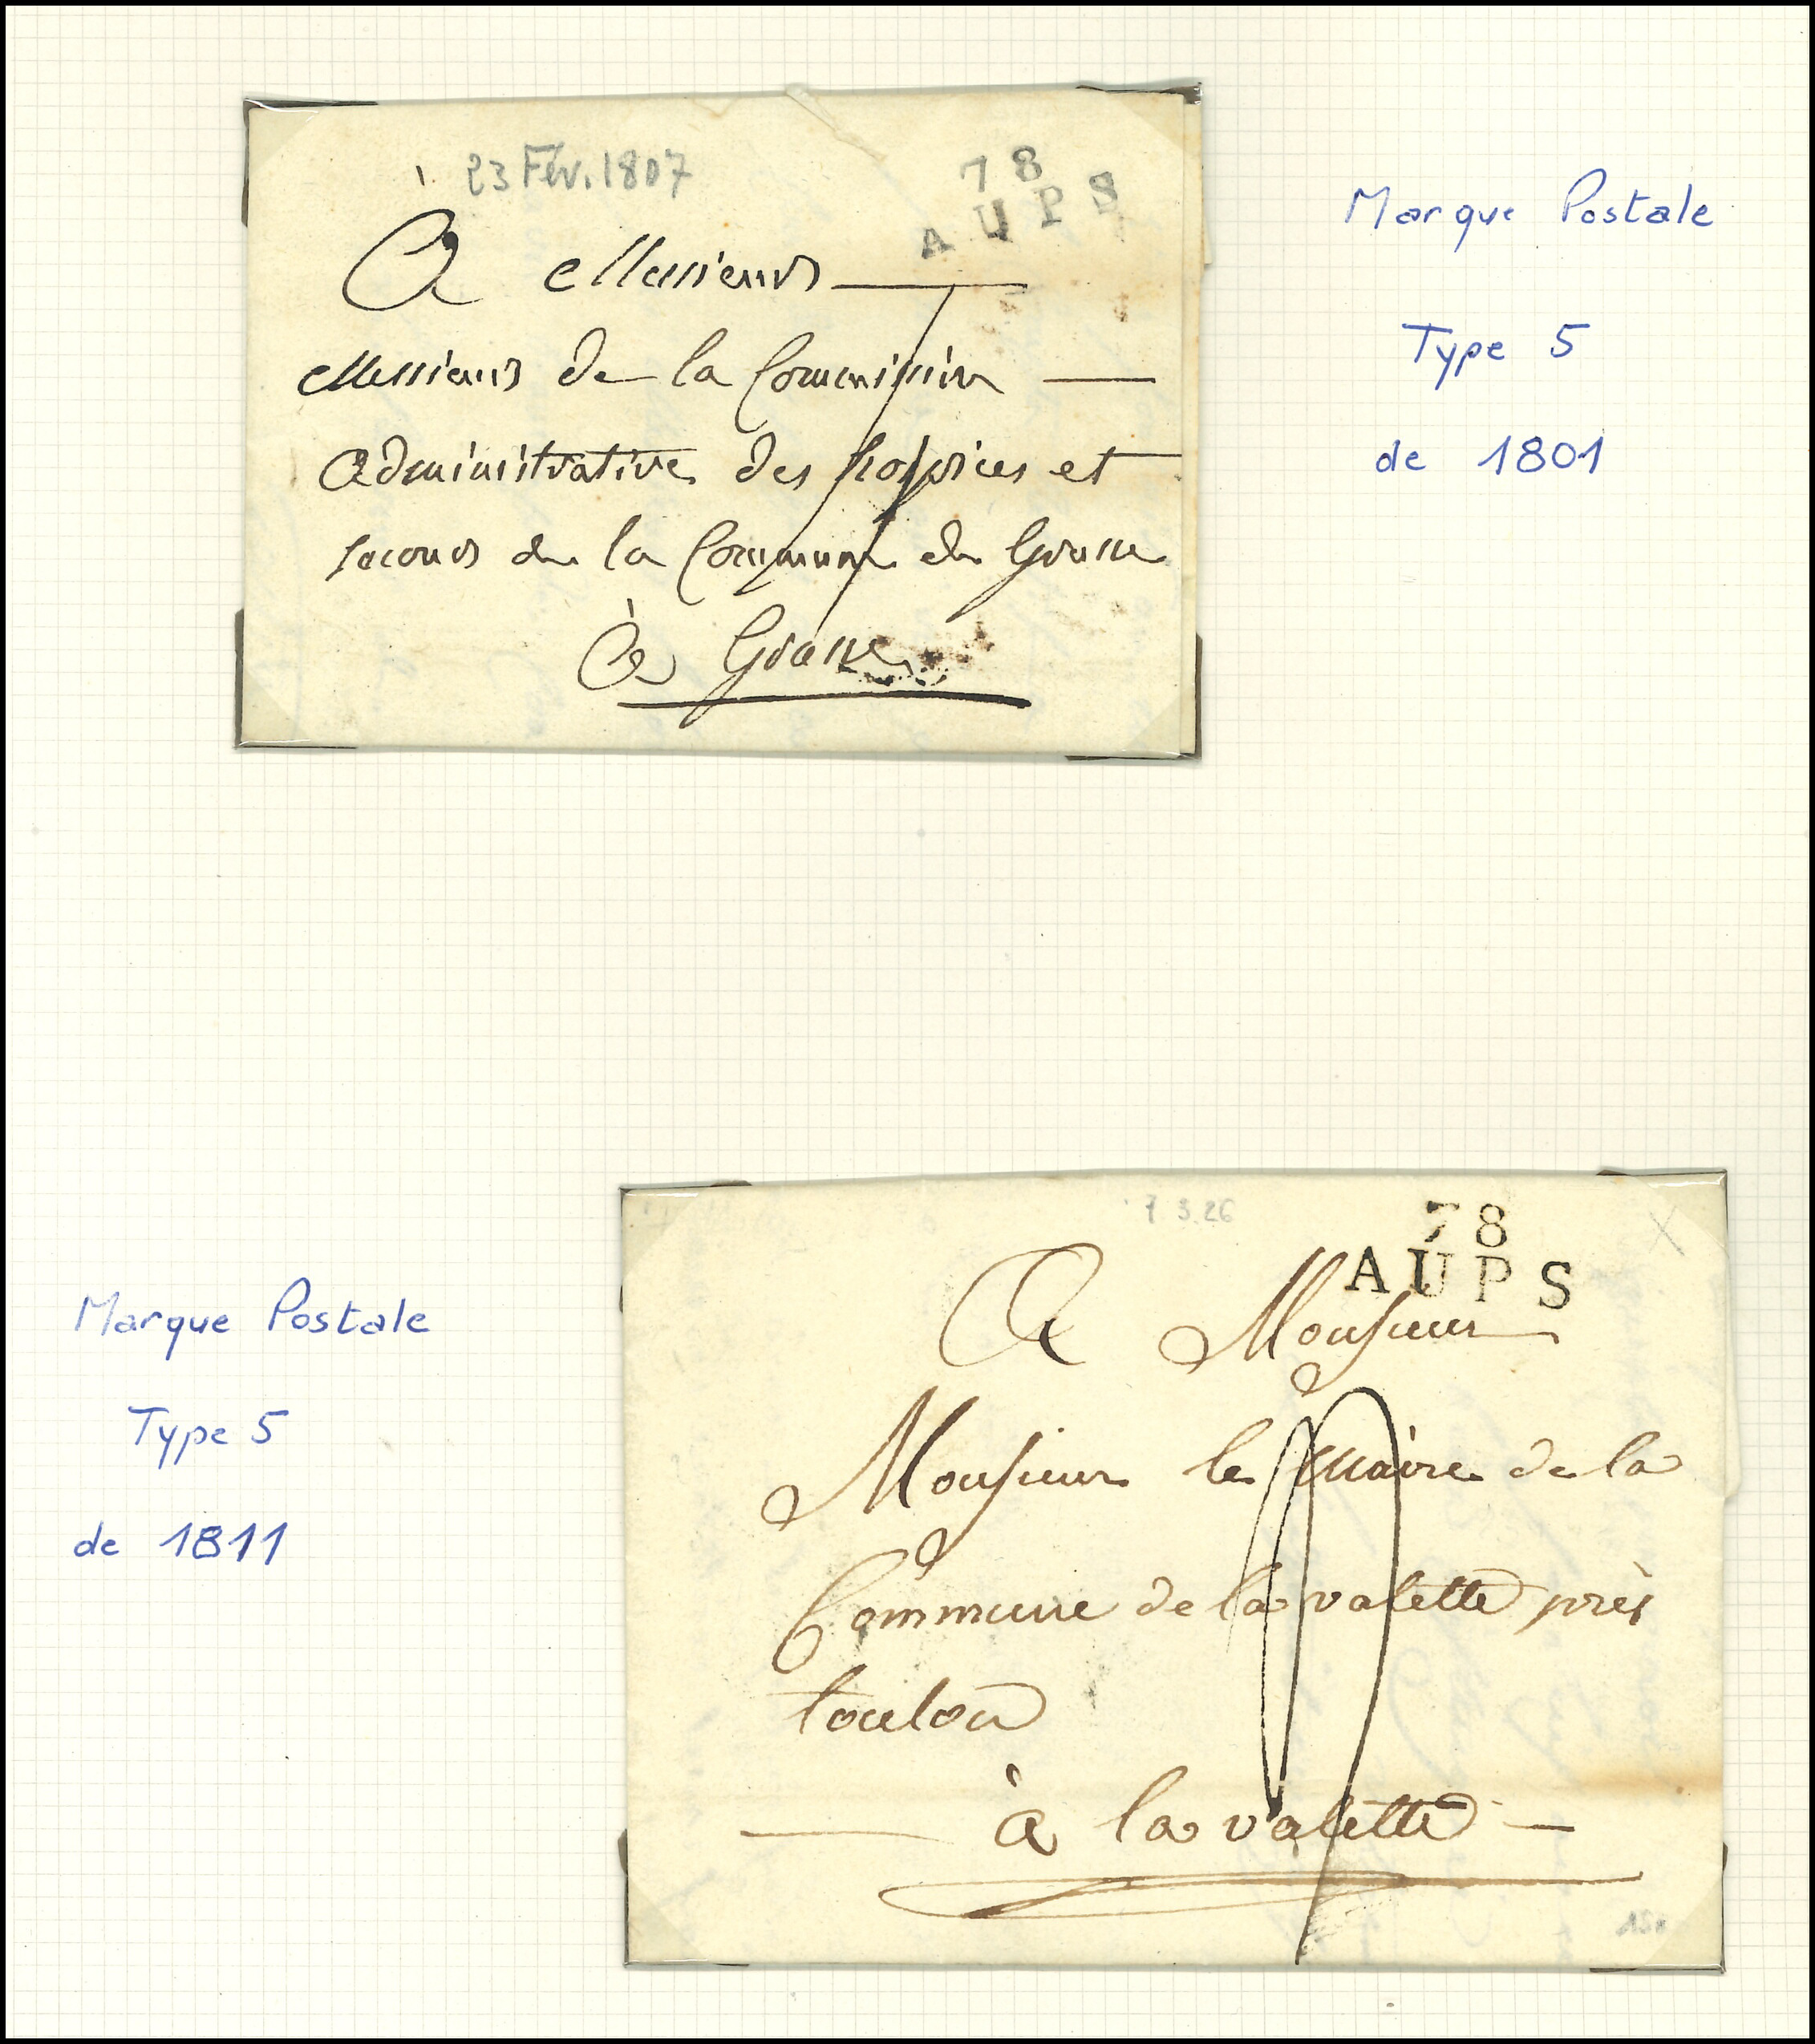 23 Fév. 1807
78
AUPS
A Messieurs
Messieurs de la Commission
administrative des hospices et
secours de la Commune de Grasse
À Grasse
Marque Postale
Type 5
de 1801
7.3.26
78
AUPS
A Monsieur
Monsieur le Maire de la
Commune de la valette près
toulon
à la valette
Marque Postale
Type 5
de 1811